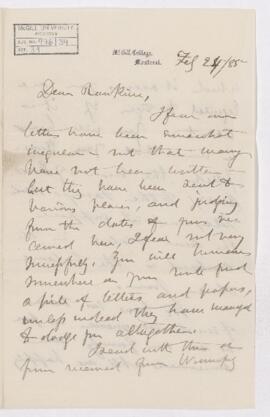 McGILL UNIVERSITY
ARCHIVES
ACC. NO. 927/34
REF. 39
McGill College,
Montreal.
Feb 24/85
Dear Rankine,
I fear our
letters have been somewhat
irregular - not that many
have not been written -
but they have been sent to
various places, and judging
from the dates of yours re-
ceived here, I fear not very
successfully. You will however
somewhere on your route find
a pile of letters, and papers,
unless indeed they have managed
to dodge you altogether.
I send with this one
from received from Winnipeg